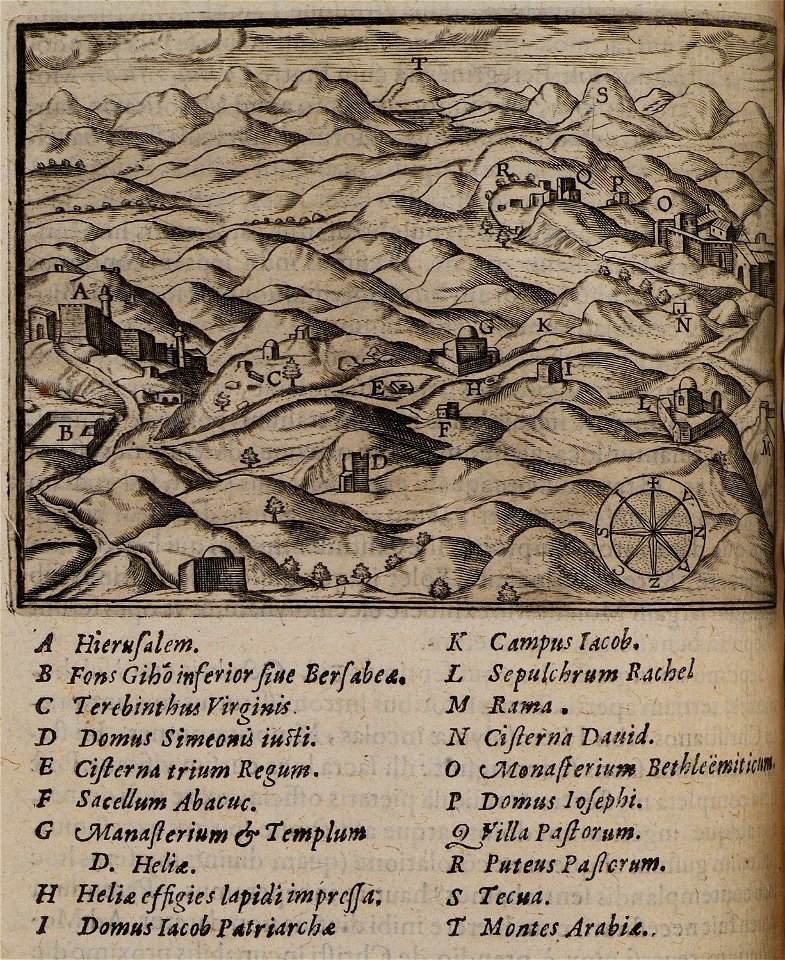 T
S
R
Q
P
O
A
N
G
K
C
E
H
I
L
F
B
D
M
✠ V N A Z C S I
A Hieruſalem.
B Fons Gihõ inferior ſiue Berſabeæ.
C Terebinthus Virginis.
D Domus Simeonis iuſti.
E Ciſterna trium Regum.
F Sacellum Abacuc.
G Manaſterium & Templum
D. Heliæ.
H Heliæ effigies lapidi impreſſa.
I Domus Iacob Patriarchæ
K Campus Iacob.
L Sepulchrum Rachel
M Rama.
N Ciſterna Dauid.
O Monaſterium Bethleẽmiticum.
P Domus Ioſephi.
Q Villa Paſtorum.
R Puteus Paſtorum.
S Tecua.
T Montes Arabiæ.